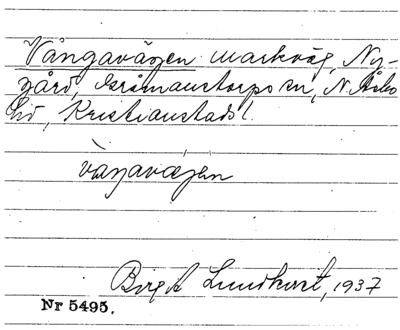 Vångavägen markväg, Ny-
gård, Grämanstorps sn, N. Åsbo
hd, Kristianstads l.
vàŋavæ̀gen
Birgit Lundkvist, 1937
Nr 5495.